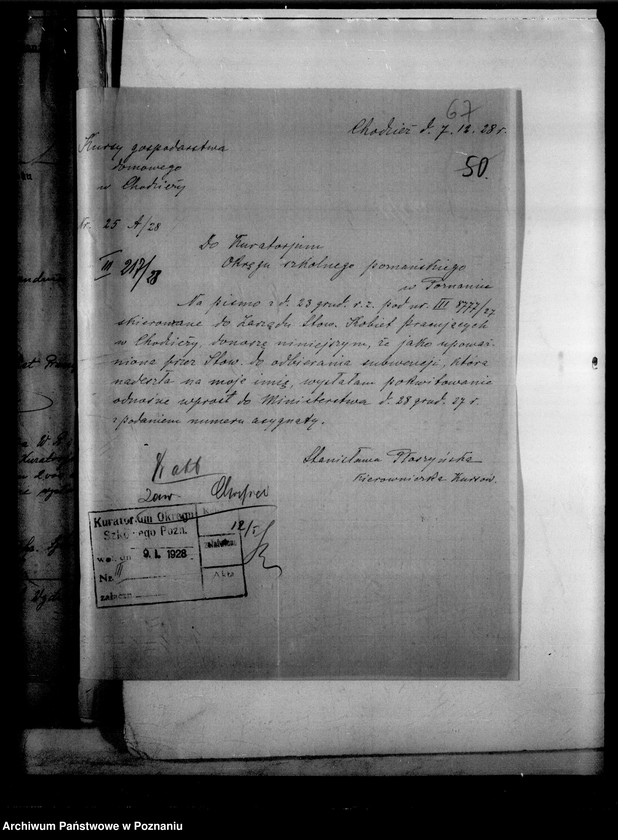 67
Chodzież d. 7. 12. 28 r.
Kursy gospodarstwa
domowego
w Chodzieży
50.
Nr. 25 A/28
III 217/28
Do Kuratorjum
Okręgu szkolnego poznańskiego
w Poznaniu
Na pismo z d. 23 grud. r. z. pod nr. III 8777/27
skierowane do Zarządu Stow. Kobiet pracujących
w Chodzieży, donoszę niniejszym, że jako upoważ-
niona przez Stow. do odbierania subwencji, która
nadeszła na moje imię, wysłałam pokwitowanie
odnośne wprost do Ministerstwa d. 28 grud. 27 r.
z podaniem numeru asygnaty.
Stanisława
Kierowniczka Kursów.
Kuratorjum Okręgu
Szkolnego Pozn.
9. I. 1928
Nr. III
załączn.
12/I
Archiwum Państwowe w Poznaniu